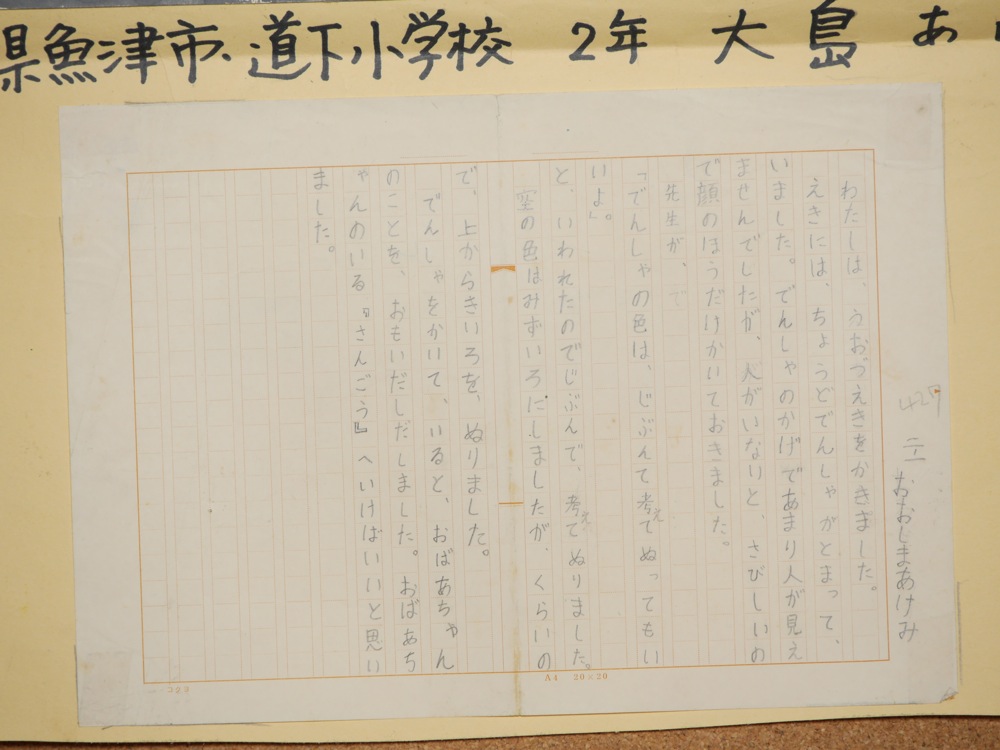 県魚津市、道下小学校 2年 大島 あ
427
二ノ一 おおしまあけみ
わたしは、うおづえきをかきました。
えきには、ちょうどでんしゃがとまって、
いました。でんしゃのかげであまり人が見え
ませんでしたが、人がいないと、さびしいの
で顔のほうだけかいておきました。
先生が、で
「でんしゃの色は、じぶんて考えてぬってもい
いよ」。
と、いわれたのでじぶんで、考えてぬりました。
空の色はみずいろにしましたが、くらいの
で、上からきいろを、ぬりました。
でんしゃをかいて、いると、おばあちゃん
のことを、おもいだしだしました。おばあち
ゃんのいる『さんごう』へいけばいいと思い
ました。
コクヨ
A4 20×20